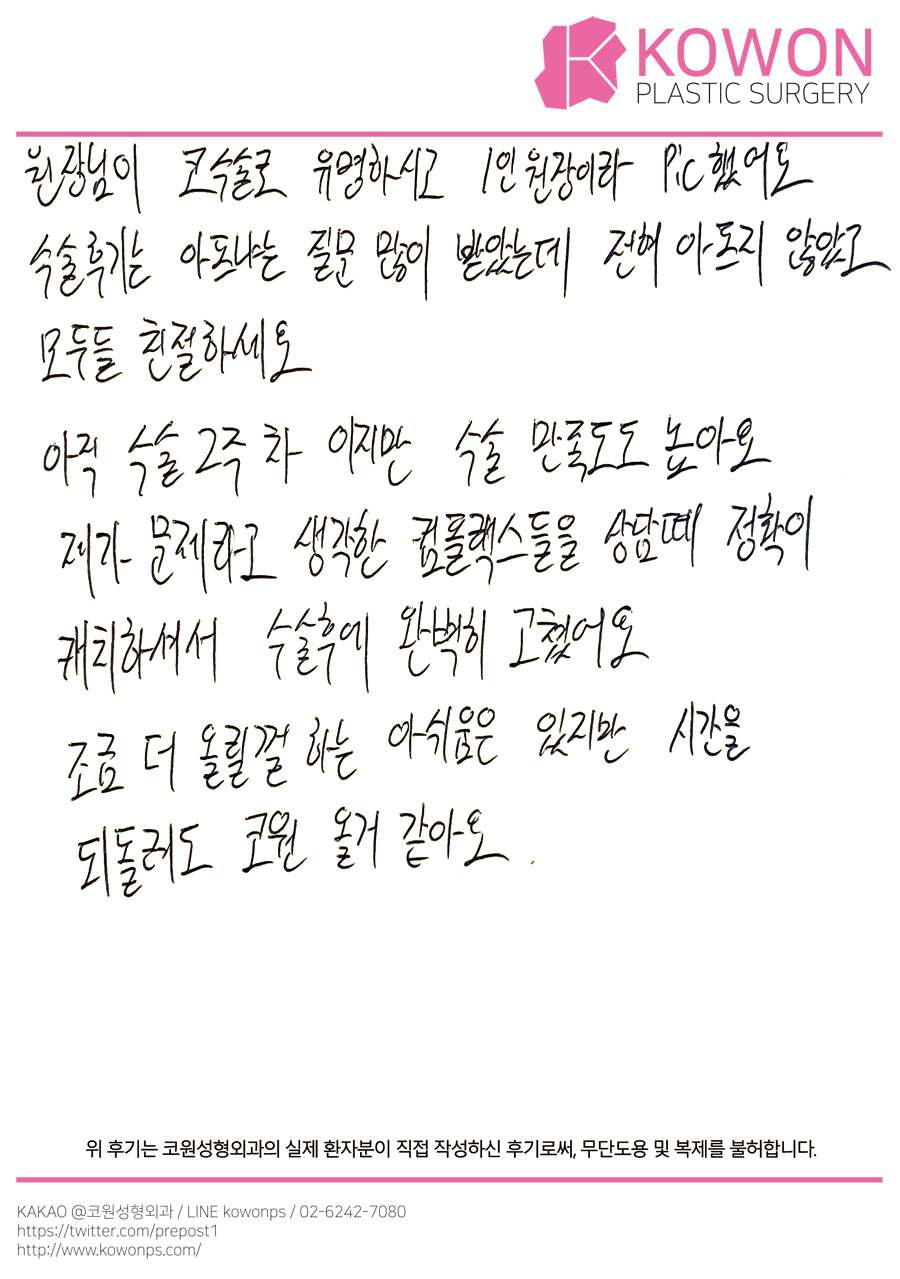 KOWON
PLASTIC SURGERY
원장님이 코수술로 유명하시고 1인 원장이라 Pic했어요
수술후기는 아프냐는 질문 많이 받았는데 전혀 아프지 않았고
모두들 친절하세요
아직 수술 2주 차 이지만 수술 만족도도 높아요
제가 문제라고 생각한 컴플랙스들을 상담때 정확이
캐치하셔서 수술후에 완벽히 고쳤어요
조금 더 올릴껄 하는 아쉬움은 있지만 시간을
되돌려도 코원 올거 같아요.
위 후기는 코원성형외과의 실제 환자분이 직접 작성하신 후기로써, 무단도용 및 복제를 불허합니다.
KAKAO @코원성형외과 / LINE kowonps / 02-6242-7080
https://twitter.com/prepost1
http://www.kowonps.com/